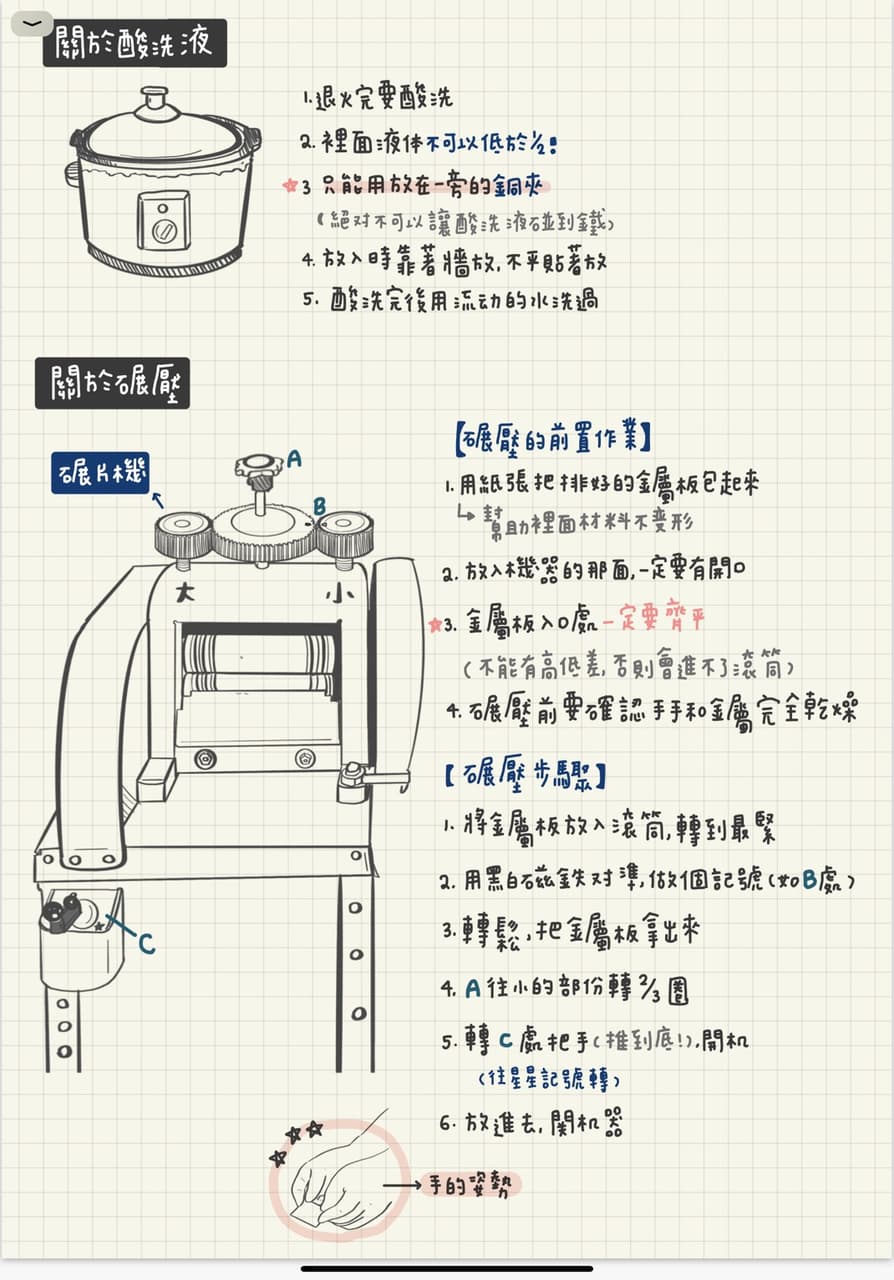 關於酸洗液
1.退火完要酸洗
2.裡面液体不可以低於½!
3 只能用放在一旁的銅夾
(絕对不可以讓酸洗液碰到鐵)
4.放入時靠著牆放,不平貼著放
5.酸洗完後用流动的水洗過
關於碾壓
碾片機
A
B
大 小
C
【碾壓的前置作業】
1.用紙張把排好的金屬板包起來
↳幫助裡面材料不变形
2.放入機器的那面,一定要有開口
3.金屬板入口處一定要齊平
(不能有高低差,否則會進不了滾筒)
4.碾壓前要確認手手和金屬完全乾燥
【碾壓步驟】
1.將金屬板放入滾筒,轉到最緊
2.用黑白磁鉄对準,做個記號(如B處)
3.轉鬆,把金屬板拿出來
4.A往小的部份轉⅔圈
5.轉C處把手(推到底!).開机
(往星星記號轉)
6.放進去,関机器
手的姿勢